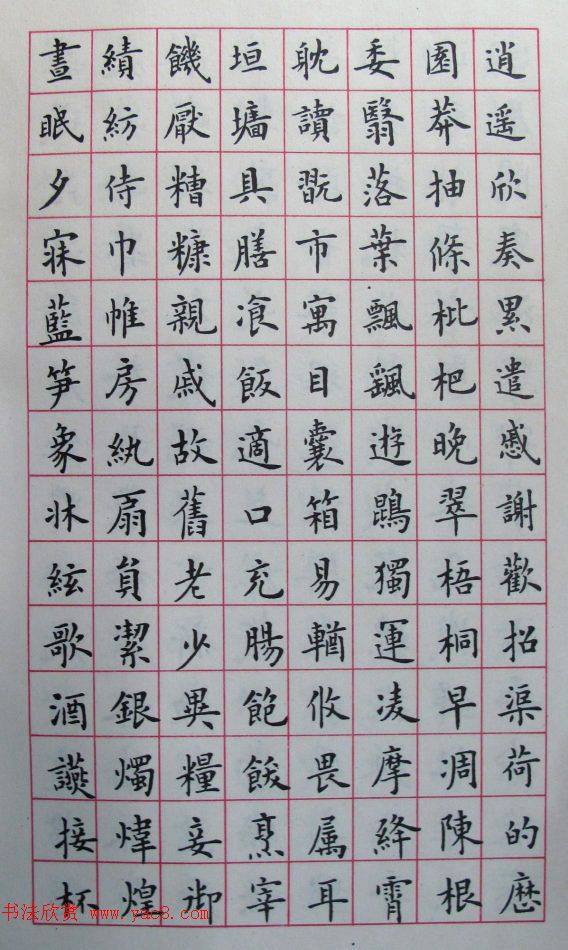 逍遥欣奏累遣慼謝歡招渠荷的歷
園莽抽條枇杷晚翠梧桐早凋陳根
委翳落葉飄颻遊鵾獨運凌摩絳霄
耽讀翫市寓目囊箱易輶攸畏属耳
垣墻具膳飡飯適口充腸飽飫烹宰
饑厭糟糠親戚故舊老少異糧妾御
績紡侍巾帷房紈扇員潔銀燭煒煌
晝眠夕寐藍笋象牀絃歌酒讌接杯
书法欣赏 www.yac8.com